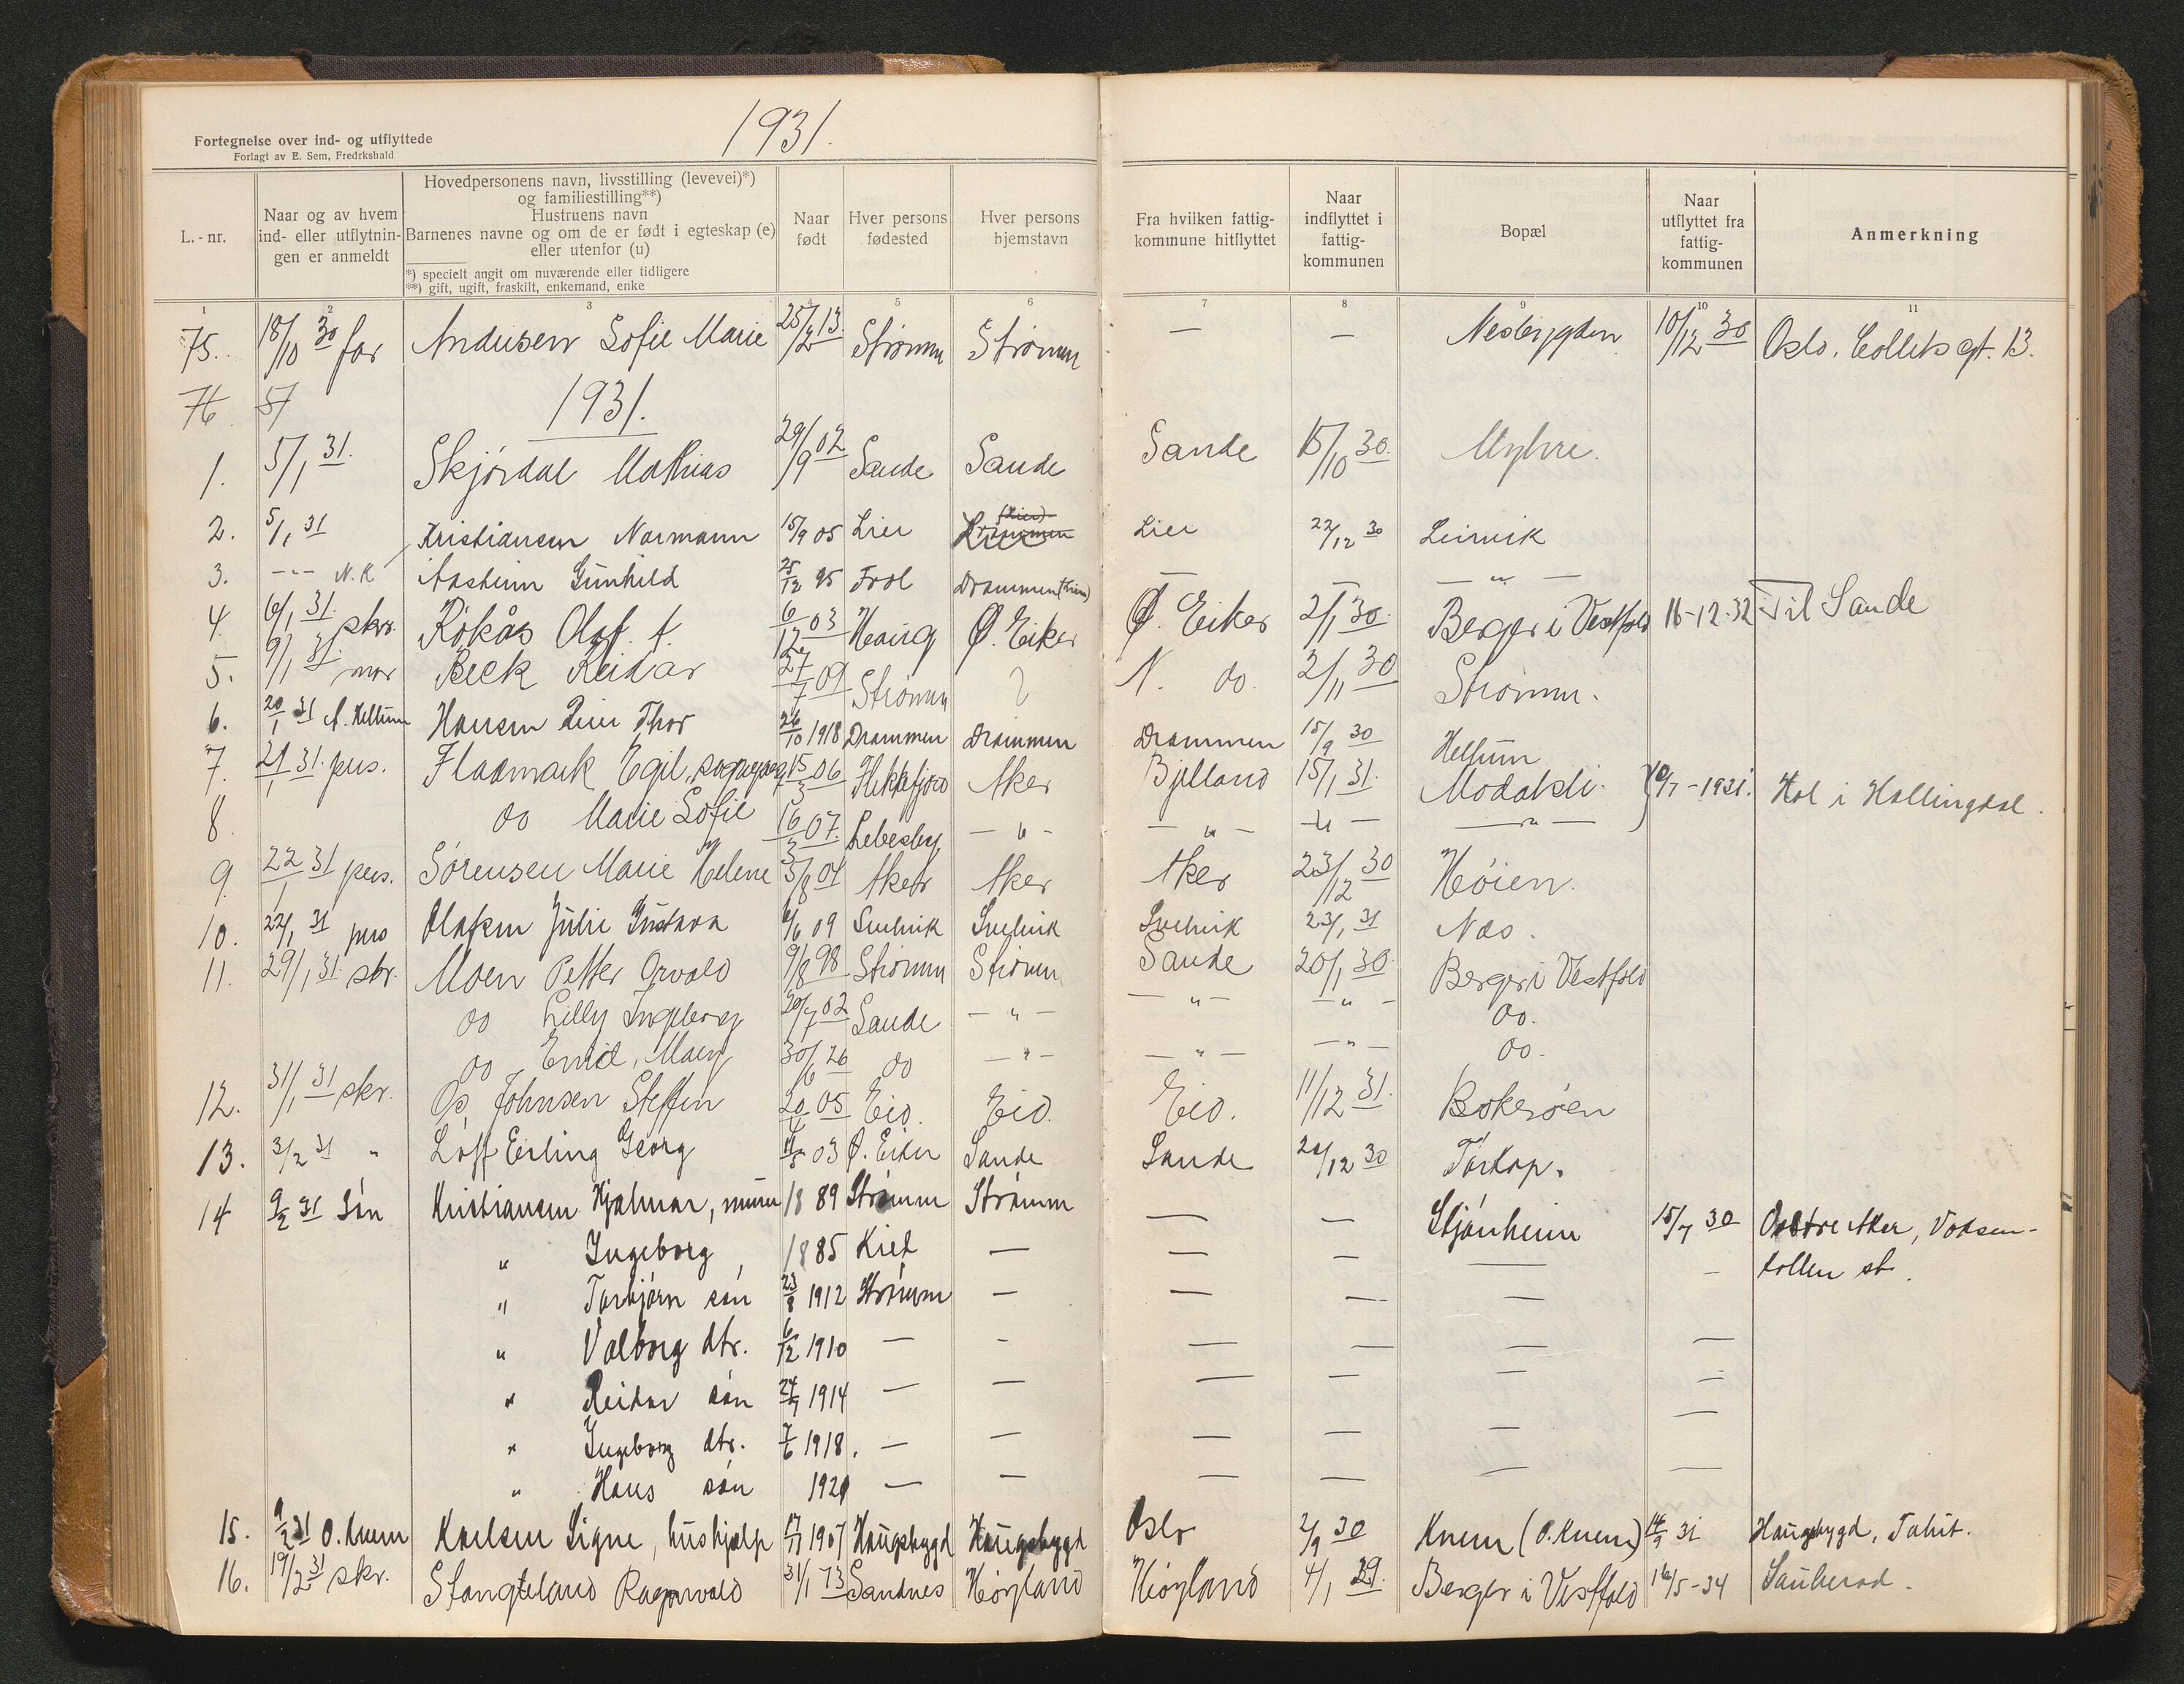 1931.
Fortegnelse over ind- og utflyttede
Forlagt av E. Sem, Fredrkshald
L.-nr.
Naar og av hvem ind- eller utflytningen er anmeldt
Hovedpersonens navn, livsstilling (levevei)*)
og familiestilling**)
Hustruens navn
Barnenes navne og om de er født i egteskap (e)
eller utenfor (u)
*) specielt angit om nuværende eller tidligere
**) gift, ugift, fraskilt, enkemand, enke
Naar født
Hver persons fødested
Hver persons hjemstavn
Fra hvilken fattigkommune hitflyttet
Naar indflyttet i fattigkommunen
Bopæl
Naar utflyttet fra fattigkommunen
Anmerkning
1 2 3 4 5 6 7 8 9 10 11
75. 18/10 30 far Andersen Sofie Marie 25/2 13. Strømm Strømm — — Nesbygden 10/12 30 Oslo. Colletsgt. 13.
76 5/
1931.
1. 5/1 31. Skjørdal Mathias 29/9 02 Sande Sande Sande 15/10 30. Myhre.
2. 5/1 31 Kristiansen Normann 15/9 05 Lier Lier 22/12 30 Leirvik
3. -"- N.K Aasheim Gunhild 25/12 95 Frol Drammen — — — " —
4. 6/1 31. skr. Rökås Olaf. f. 6/12 03 Haug Ø. Eiker Ø. Eiker 2/1 30. Berger i Vestfold 16-12-32 Til Sande
5. 9/1 31. mor Beck Reidar 27/7 09 Strømm ? N. do. 2/11 30 Strømm.
6. 20/1 31 A. Hellum Hansen Thor 26/10 1918 Drammen Drammen Drammen 15/9 30 Hellum
7. 21/1 31. pers. Fladmark Egil, 15/3 06 Flekkefjord Aker Bjelland 15/1 31. Modalsli. 10/7-1931. Hol i Hallingdal.
8. do Marie Sofie 16/3 07. Lebesby — " — — " — — " — — " —
9. 22/1 31 pers. Sørensen Marie Helene 5/8 04 Aker Aker Aker 23/12 30 Høien.
10. 22/1 31 pers Olafsen Julie Gustava 6/6 09 Svelvik Svelvik Svelvik 23/1 31 Nes.
11. 29/1 31. skr. Moen Petter Orvald 9/8 98 Strømm Strømm Sande 20/1 30. Berger i Vestfold
do Lilly Ingeborg 20/7 02 Sande — " — — " — — " — do.
do Enid, Mary 30/6 26 do — " — — " — — " — do.
12. 31/1 31 skr. Os, Johnsen Steffen 20/4 05 Eid. Eid. Eid. 11/12 31. Bokerøen
13. 3/2 31 " Løff Erling Georg 11/5 03 Ø. Eiker Sande Sande 20/12 30 Tørkop.
14 9/2 31 Søn Kristiansen Hjalmar, murer 1889 Strømm Strømm — — Stjønheim 15/7 30 Østre Aker, Voksenkollen st.
" Ingeborg, 1885 Kiel — — — — —
" Torbjørn søn 23/8 1912 Strømm — — — —
" Valborg dtr. 6/12 1910 — — — — — —
" Reidar søn 24/7 1914 — — — — — —
" Ingeborg dtr. 7/6 1918. — — — — — —
" Hans søn 1920 — — — — — —
15. 9/2 31 O. Knem Karlsen Signe, hushjælp 17/11 1907 Haugsbygd Haugsbygd Oslo 2/9 30 Knem (O. Knem) 14/9 31 Haugsbygd,
16. 19/2 31 skr. Stangeland Ragnvald 31/1 73 Sandnes Høyland Høyland 4/1 29. Berger i Vestfold 16/5-34 Sauherad.